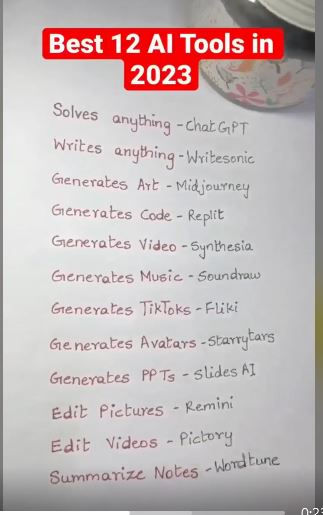 Best 12 AI Tools in
2023
Solves anything - ChatGPT
Writes anything - Writesonic
Generates Art - Midjourney
Generates Code - Replit
Generates Video - Synthesia
Generates Music - Soundraw
Generates TikToks - Fliki
Generates Avatars - Starrytars
Generates PPTs - Slides AI
Edit Pictures - Remini
Edit Videos - Pictory
Summarize Notes - Wordtune
0:23